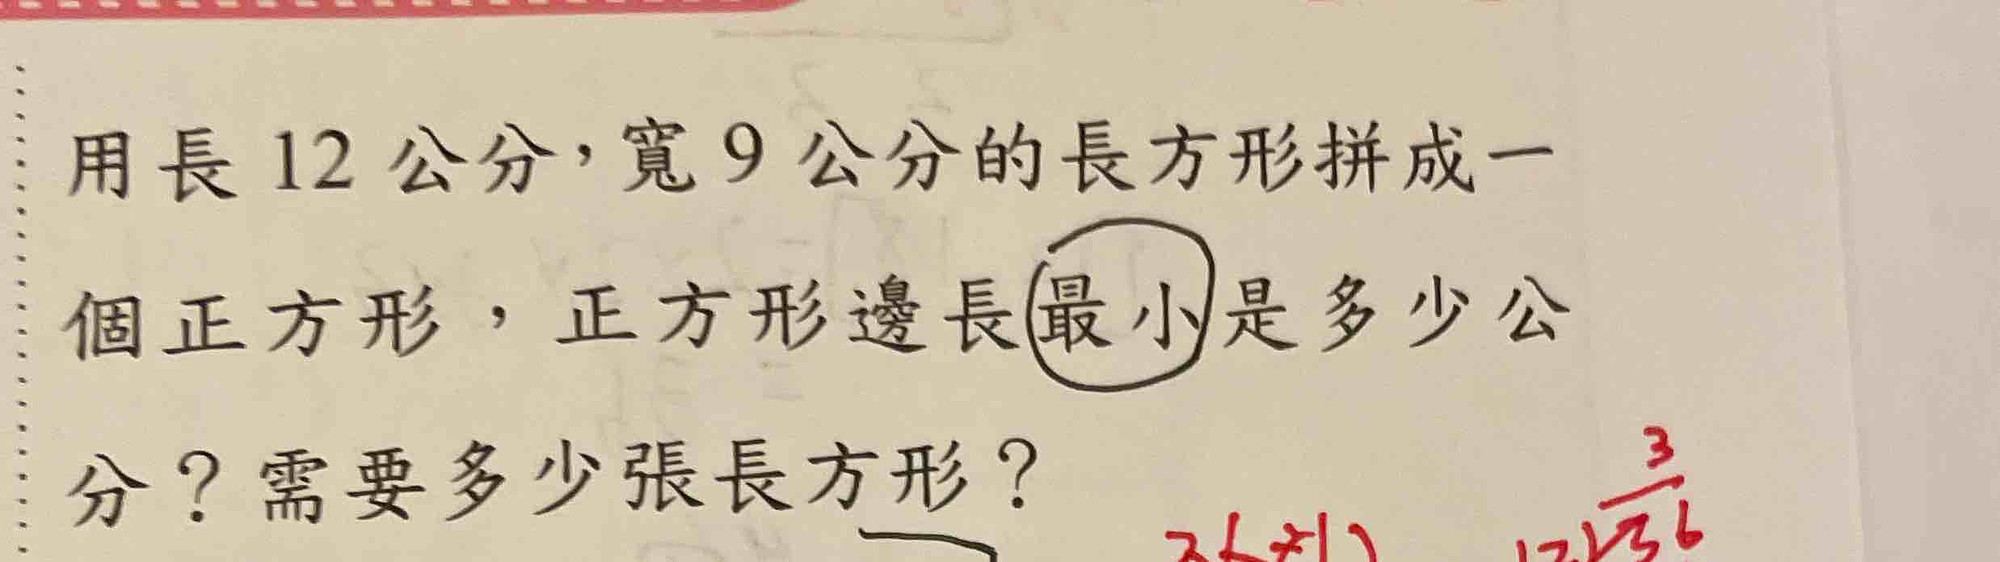 用長 12 公分，寬 9 公分的長方形拼成一
個正方形，正方形邊長最小是多少公
分？需要多少張長方形？
3
36÷12
12√36